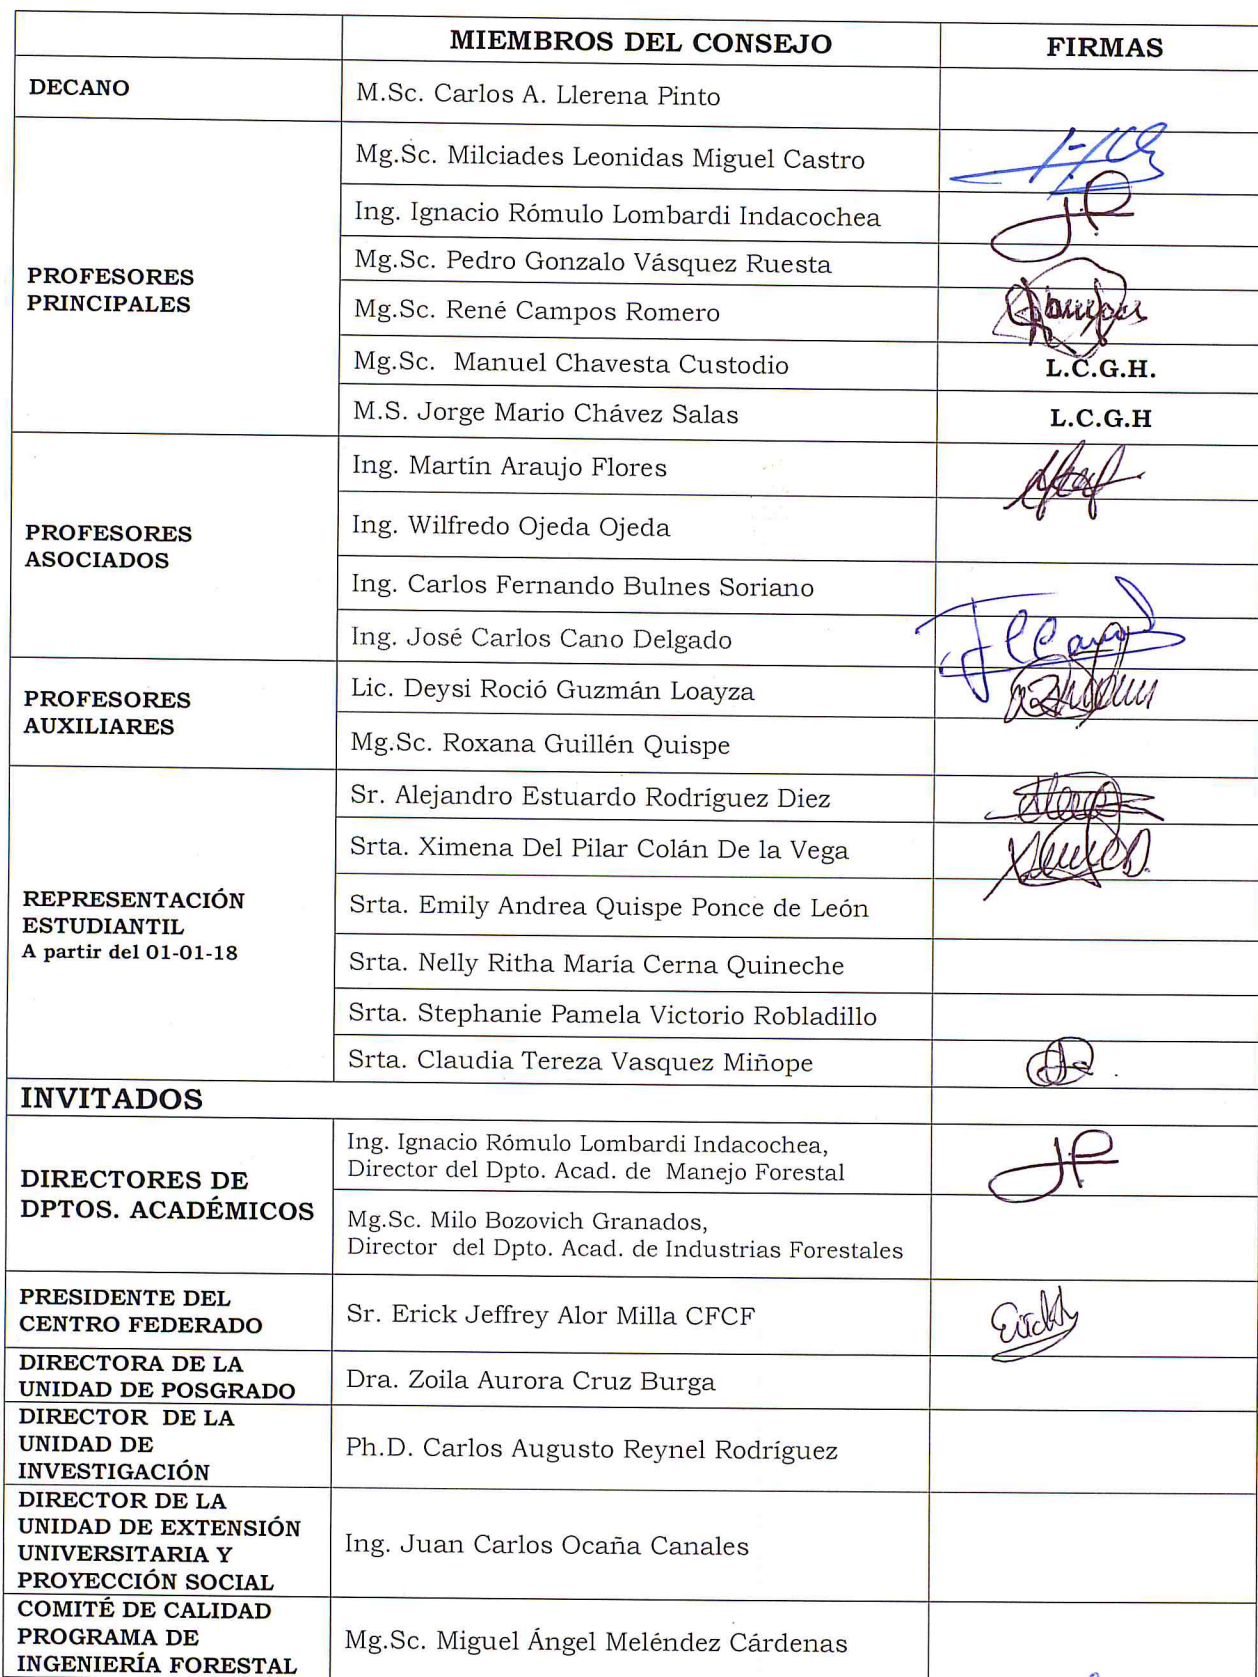 MIEMBROS DEL CONSEJO FIRMAS
DECANO M.Sc. Carlos A. Llerena Pinto
PROFESORES
PRINCIPALES
Mg.Sc. Milciades Leonidas Miguel Castro
Ing. Ignacio Rómulo Lombardi Indacochea
Mg.Sc. Pedro Gonzalo Vásquez Ruesta
Mg.Sc. René Campos Romero
Mg.Sc. Manuel Chavesta Custodio L.C.G.H.
M.S. Jorge Mario Chávez Salas L.C.G.H
PROFESORES
ASOCIADOS
Ing. Martín Araujo Flores
Ing. Wilfredo Ojeda Ojeda
Ing. Carlos Fernando Bulnes Soriano
Ing. José Carlos Cano Delgado
PROFESORES
AUXILIARES
Lic. Deysi Roció Guzmán Loayza
Mg.Sc. Roxana Guillén Quispe
REPRESENTACIÓN
ESTUDIANTIL
A partir del 01-01-18
Sr. Alejandro Estuardo Rodríguez Diez
Srta. Ximena Del Pilar Colán De la Vega
Srta. Emily Andrea Quispe Ponce de León
Srta. Nelly Ritha María Cerna Quineche
Srta. Stephanie Pamela Victorio Robladillo
Srta. Claudia Tereza Vasquez Miñope
INVITADOS
DIRECTORES DE
DPTOS. ACADÉMICOS
Ing. Ignacio Rómulo Lombardi Indacochea,
Director del Dpto. Acad. de Manejo Forestal
Mg.Sc. Milo Bozovich Granados,
Director del Dpto. Acad. de Industrias Forestales
PRESIDENTE DEL
CENTRO FEDERADO
Sr. Erick Jeffrey Alor Milla CFCF
DIRECTORA DE LA
UNIDAD DE POSGRADO
Dra. Zoila Aurora Cruz Burga
DIRECTOR DE LA
UNIDAD DE
INVESTIGACIÓN
Ph.D. Carlos Augusto Reynel Rodríguez
DIRECTOR DE LA
UNIDAD DE EXTENSIÓN
UNIVERSITARIA Y
PROYECCIÓN SOCIAL
Ing. Juan Carlos Ocaña Canales
COMITÉ DE CALIDAD
PROGRAMA DE
INGENIERÍA FORESTAL
Mg.Sc. Miguel Ángel Meléndez Cárdenas